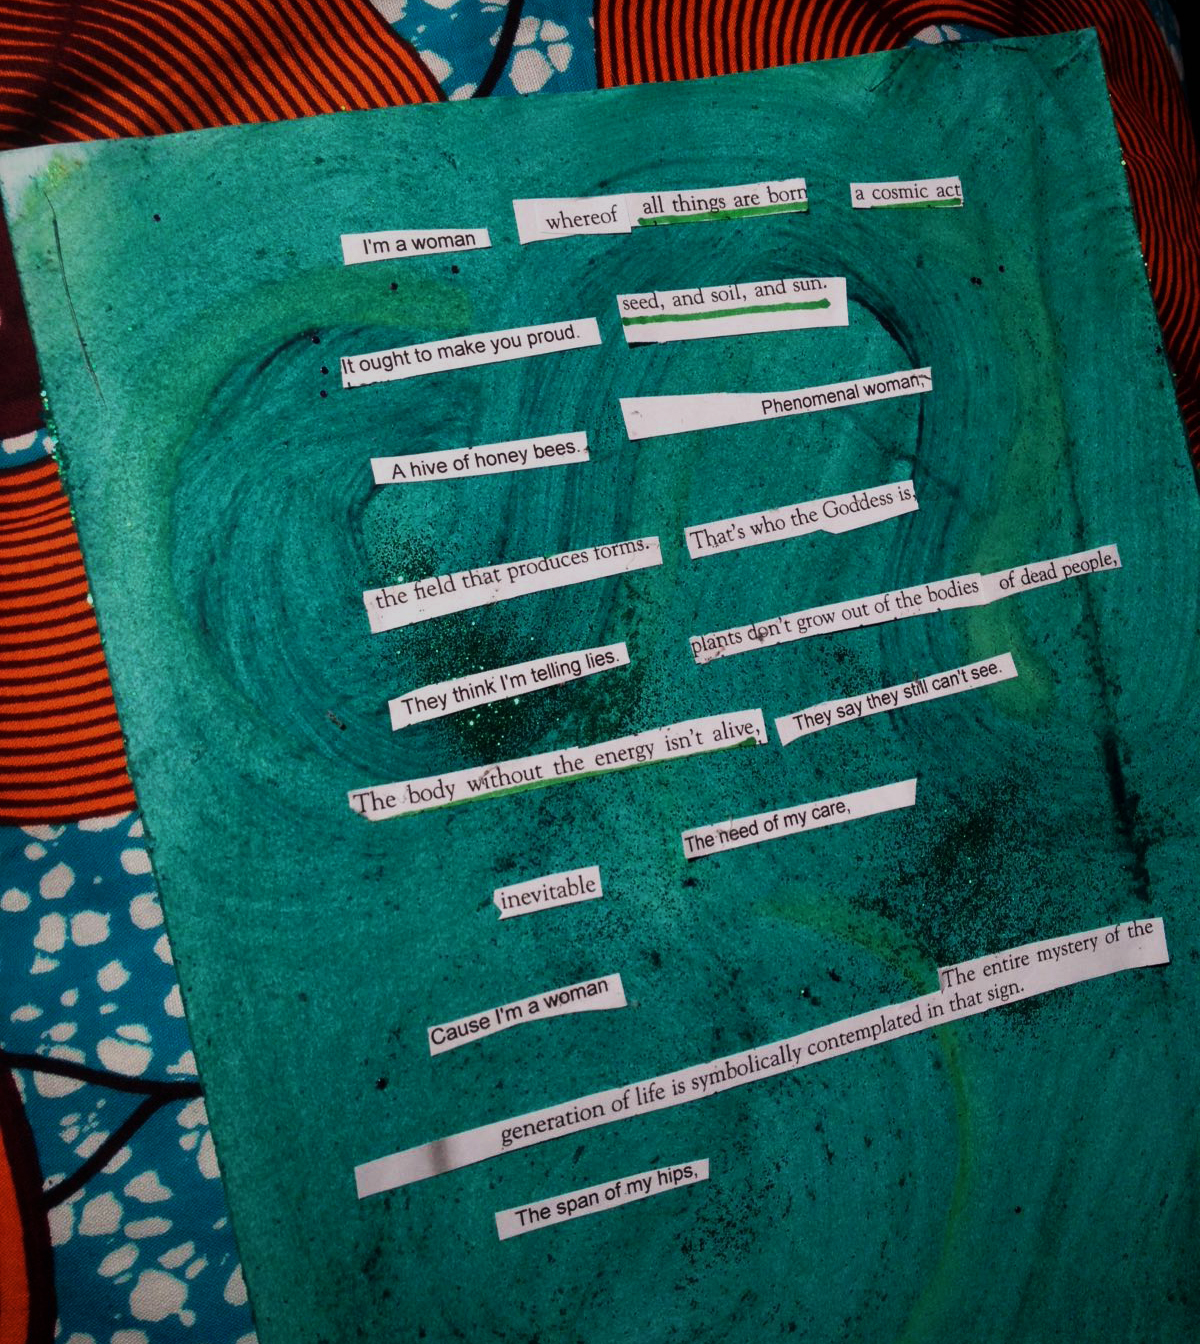 I'm a woman whereof all things are born a cosmic act
It ought to make you proud. seed, and soil, and sun.
A hive of honey bees. Phenomenal woman,
the field that produces forms. That's who the Goddess is,
They think I'm telling lies. plants don't grow out of the bodies of dead people,
The body without the energy isn't alive, They say they still can't see.
The need of my care,
inevitable
Cause I'm a woman
The entire mystery of the
generation of life is symbolically contemplated in that sign.
The span of my hips,